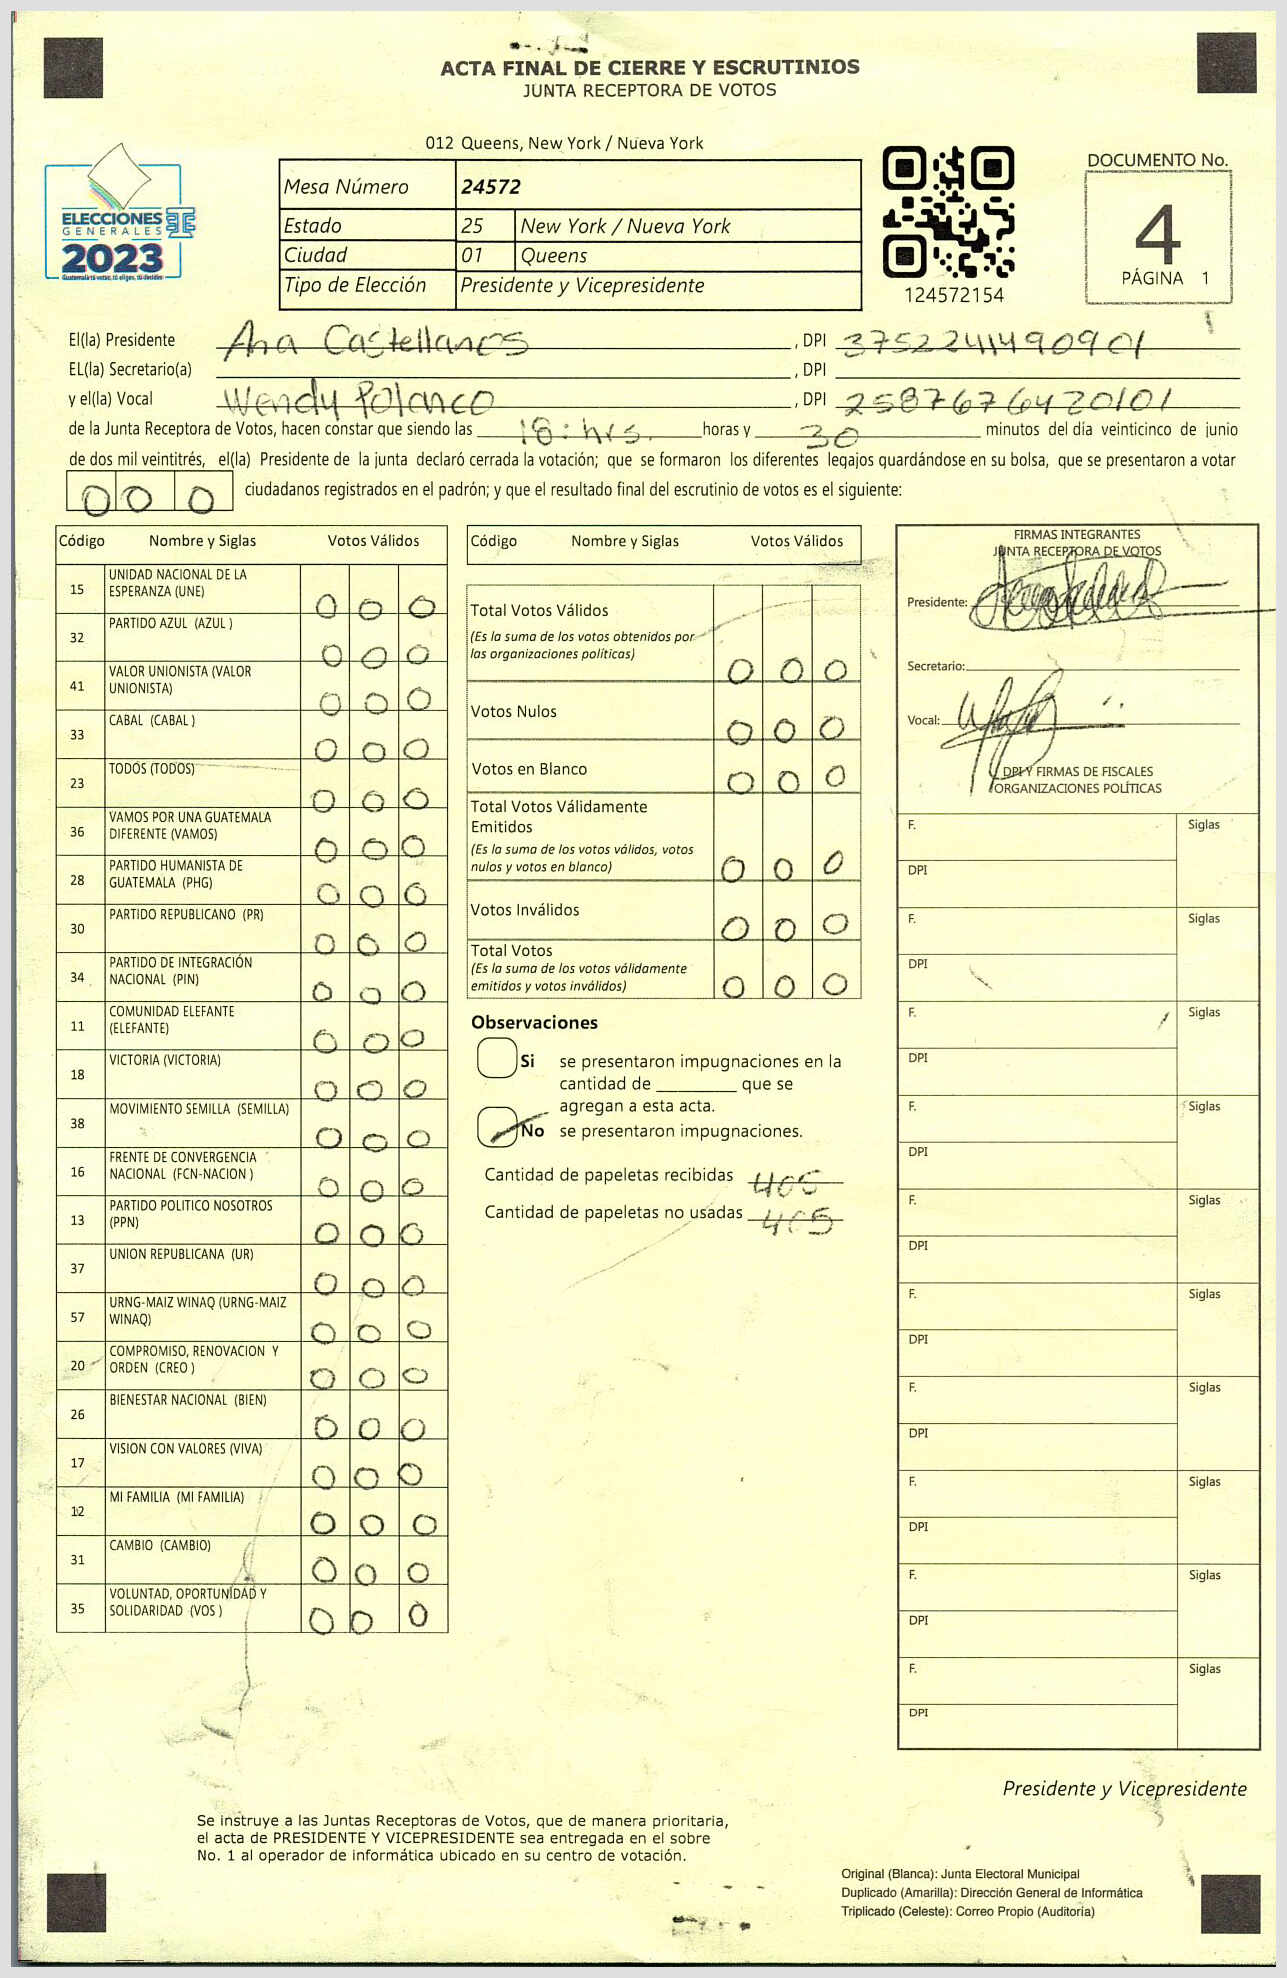 ACTA FINAL DE CIERRE Y ESCRUTINIOS
JUNTA RECEPTORA DE VOTOS
012 Queens, New York / Nueva York
ELECCIONES
GENERALES
2023
Guatemala tú votas, tú eliges, tú decides
Mesa Número 24572
Estado 25 New York / Nueva York
Ciudad 01 Queens
Tipo de Elección Presidente y Vicepresidente
124572154
DOCUMENTO No.
4
PÁGINA 1
El(la) Presidente Ana Castellanos, DPI 3752241490901
EL(la) Secretario(a) , DPI
y el(la) Vocal Wendy Polanco, DPI 2587676420101
de la Junta Receptora de Votos, hacen constar que siendo las 18: hrs. horas y 30 minutos del día veinticinco de junio
de dos mil veintitrés, el(la) Presidente de la junta declaró cerrada la votación; que se formaron los diferentes legajos guardándose en su bolsa, que se presentaron a votar
0 0 0 ciudadanos registrados en el padrón; y que el resultado final del escrutinio de votos es el siguiente:
Código Nombre y Siglas Votos Válidos
15 UNIDAD NACIONAL DE LA
ESPERANZA (UNE) 0 0 0
32 PARTIDO AZUL (AZUL ) 0 0 0
41 VALOR UNIONISTA (VALOR
UNIONISTA) 0 0 0
33 CABAL (CABAL ) 0 0 0
23 TODOS (TODOS) 0 0 0
36 VAMOS POR UNA GUATEMALA
DIFERENTE (VAMOS) 0 0 0
28 PARTIDO HUMANISTA DE
GUATEMALA (PHG) 0 0 0
30 PARTIDO REPUBLICANO (PR) 0 0 0
34 PARTIDO DE INTEGRACIÓN
NACIONAL (PIN) 0 0 0
11 COMUNIDAD ELEFANTE
(ELEFANTE) 0 0 0
18 VICTORIA (VICTORIA) 0 0 0
38 MOVIMIENTO SEMILLA (SEMILLA) 0 0 0
16 FRENTE DE CONVERGENCIA
NACIONAL (FCN-NACION ) 0 0 0
13 PARTIDO POLITICO NOSOTROS
(PPN) 0 0 0
37 UNION REPUBLICANA (UR) 0 0 0
57 URNG-MAIZ WINAQ (URNG-MAIZ
WINAQ) 0 0 0
20 COMPROMISO, RENOVACION Y
ORDEN (CREO ) 0 0 0
26 BIENESTAR NACIONAL (BIEN) 0 0 0
17 VISION CON VALORES (VIVA) 0 0 0
12 MI FAMILIA (MI FAMILIA) 0 0 0
31 CAMBIO (CAMBIO) 0 0 0
35 VOLUNTAD, OPORTUNIDAD Y
SOLIDARIDAD (VOS ) 0 0 0
Código Nombre y Siglas Votos Válidos
Total Votos Válidos
(Es la suma de los votos obtenidos por
las organizaciones políticas) 0 0 0
Votos Nulos 0 0 0
Votos en Blanco 0 0 0
Total Votos Válidamente
Emitidos
(Es la suma de los votos válidos, votos
nulos y votos en blanco) 0 0 0
Votos Inválidos 0 0 0
Total Votos
(Es la suma de los votos válidamente
emitidos y votos inválidos) 0 0 0
Observaciones
Si se presentaron impugnaciones en la
cantidad de ________ que se
agregan a esta acta.
No se presentaron impugnaciones.
Cantidad de papeletas recibidas 405
Cantidad de papeletas no usadas 405
FIRMAS INTEGRANTES
JUNTA RECEPTORA DE VOTOS
Presidente:
Secretario:
Vocal:
DPI Y FIRMAS DE FISCALES
ORGANIZACIONES POLÍTICAS
F. Siglas
DPI
F. Siglas
DPI
F. Siglas
DPI
F. Siglas
DPI
F. Siglas
DPI
F. Siglas
DPI
F. Siglas
DPI
F. Siglas
DPI
F. Siglas
DPI
F. Siglas
DPI
Presidente y Vicepresidente
Se instruye a las Juntas Receptoras de Votos, que de manera prioritaria,
el acta de PRESIDENTE Y VICEPRESIDENTE sea entregada en el sobre
No. 1 al operador de informática ubicado en su centro de votación.
Original (Blanca): Junta Electoral Municipal
Duplicado (Amarilla): Dirección General de Informática
Triplicado (Celeste): Correo Propio (Auditoría)